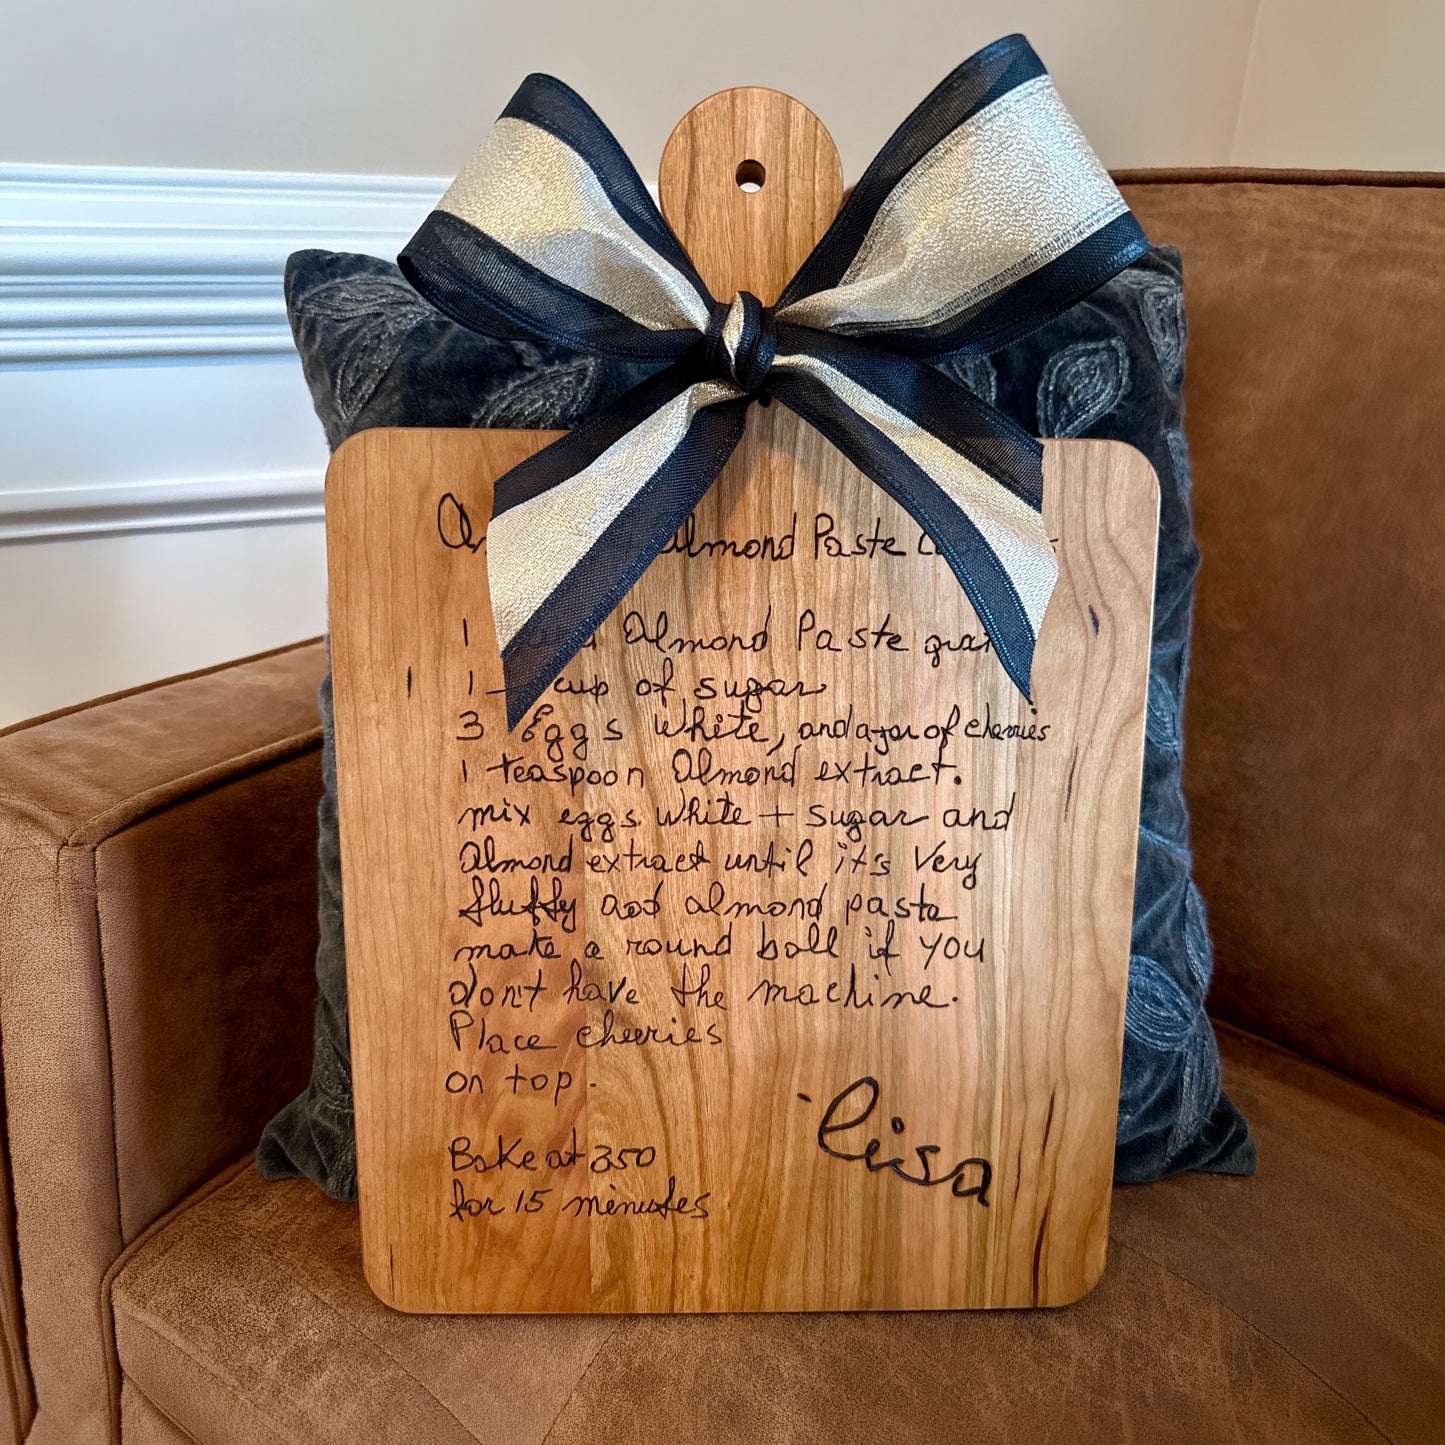 Almond Paste
1 Almond Paste
1 cup of sugar
3 Eggs White, and a jar of cherries
1 teaspoon Almond extract.
mix eggs white + sugar and
Almond extract until it's Very
fluffy add almond paste
make a round ball if you
don't have the machine.
Place cherries
on top.
Bake at 350
for 15 minutes
lisa